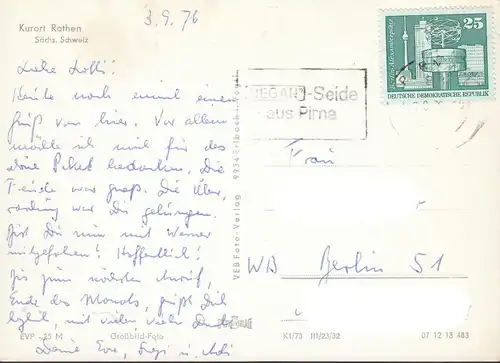 3.9.76
Kurort Rathen
Sächs. Schweiz
25
DEUTSCHE DEMOKRATISCHE REPUBLIK
-Seide
aus Pirna
Liebe Lotti!
Heute noch einmal einen
Gruß von hier. Vor allem
möchte ich mich für das
schöne Paket bedanken. Die
Freude war groß. Die Über-
raschung war Dir gelungen.
Bist Du nun mit Werner
mitgefahren? Hoffentlich!
Bis zum nächsten
Ende des Monats, grüßt Dich
herzlich, mit vielen vielen
Deine Eva, u.
Frau
WB Berlin 51
VEB Foto-Verlag 9934 Erlbach i. Vogtl.
EVP -,25 M Großbild-Foto
K1/73 III/23/32 07 12 13 483